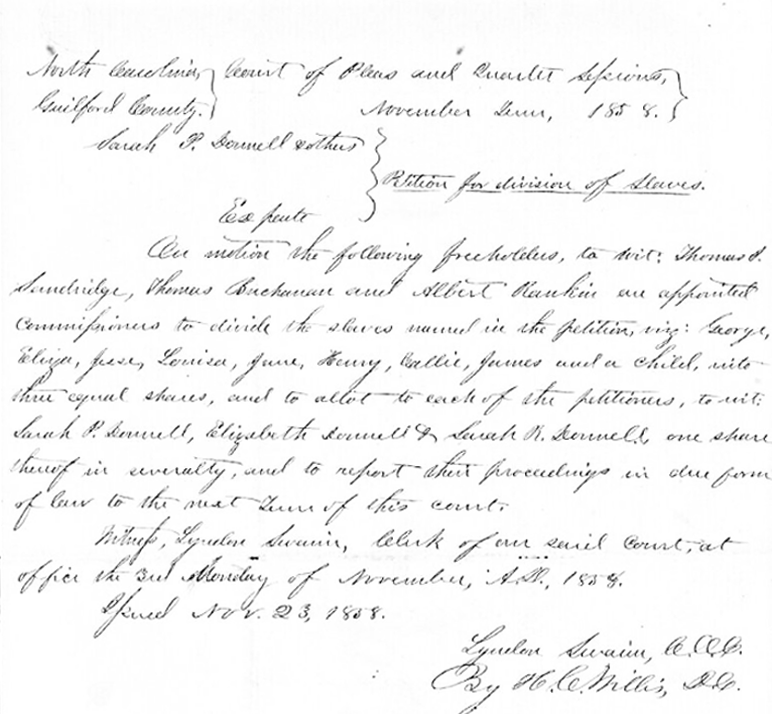 North Carolina, Court of Pleas and Quarter Sessions,
Guilford County. November Term, 1858.
Sarah P. Donnell & others
Petition for division of Slaves.
Ex parte
On motion the following freeholders, to wit: Thomas P.
Sandridge, Thomas Buchanan and Albert Rankin are appointed
Commissioners to divide the slaves named in the petition, viz: George,
Eliza, Jesse, Louisa, Jane, Henry, Callie, James and a child, into
three equal shares, and to allot to each of the petitioners, to wit:
Sarah P. Donnell, Elizabeth Donnell & Sarah R. Donnell, one share
thereof in severalty, and to report their proceedings in due form
of law to the next Term of this court.
Witness, Lyndon Swaim, Clerk of our said Court, at
office the 3rd Monday of November, A.D., 1858.
Issued Nov. 23, 1858.
Lyndon Swaim, C.C.C.
By H. C. Willis, D.C.